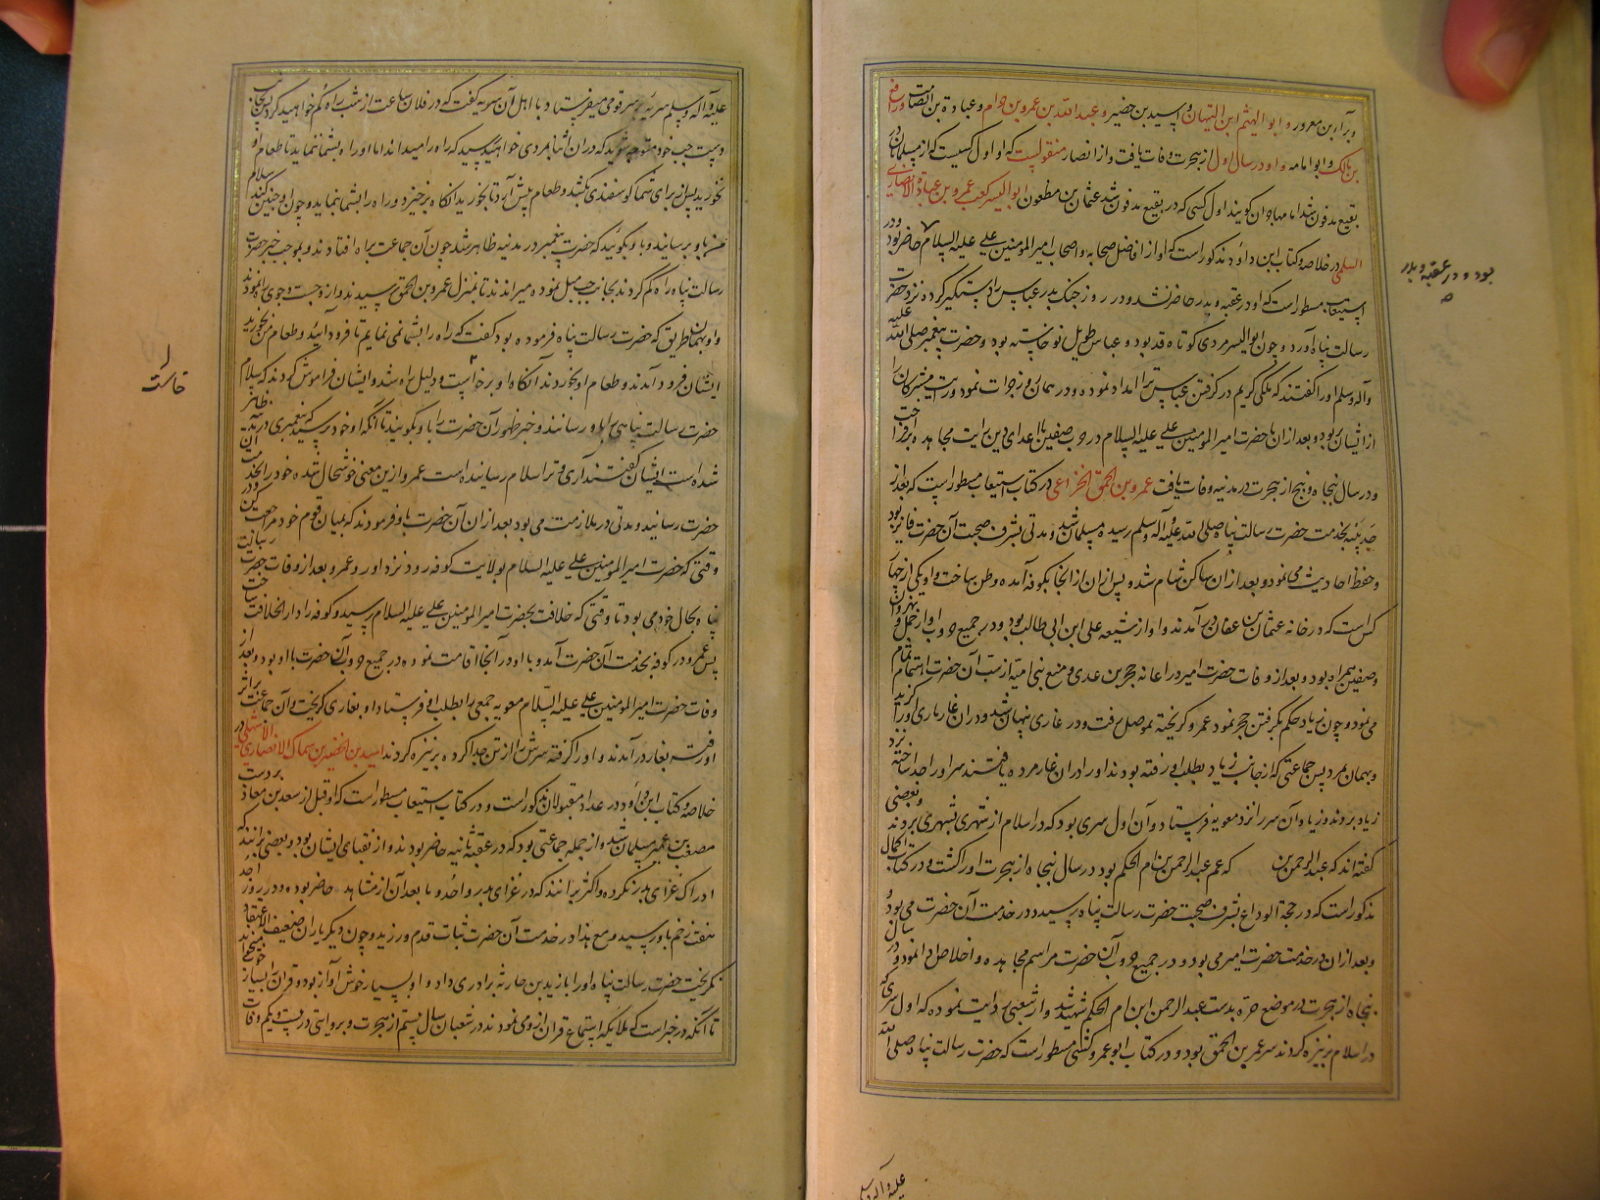 و براء بن معرور و ابو الهیثم ابن التیهان و اسید بن حضیر و عبد الله بن عمرو بن حرام و عبادة بن الصامت و رافع
بن مالک و ابو امامه و او در سال اول از هجرت وفات یافت و از انصار منقولست که او اول کسیست که از مسلمانان در
بقیع مدفون شد اما مهاجران گویند اول کسی که در بقیع مدفون شد عثمان بن مظعون ابو الیسر کعب بن عمرو بن عباد الانصاری
السلمی در خلاصه و کتاب ابن داود مذکور است که او از افاضل صحابه و اصحاب امیر المومنین علی علیه السلام حاضر بود و در
استیعاب مسطور است که او در عقبه و بدر حاضر شد و در روز جنگ بدر عباس را دستگیر کرده نزد حضرت
رسالت پناه آورد و چون ابو الیسر مردی کوتاه قد بود و عباس طویل نو خاسته بود و حضرت پیغمبر صلی الله علیه
و آله و سلم او را گفتند که ملکی کریم در گرفتن عباس ترا امداد نموده و در همان روز جرات نمود و رایت مشرکان را
از ایشان ربود و بعد از ان با حضرت امیر المومنین علی علیه السلام در حرب صفین با اعدای دین رایت مجاهده بر افراخت
و در سال پنجاه و پنج از هجرت در مدینه وفات یافت عمرو بن الحمق الخزاعی در کتاب استیعاب مسطور است که بعد از
حدیبیه بخدمت حضرت رسالت پناه صلی الله علیه و آله و سلم رسیده مسلمان شد و مدتی بشرف صحبت آن حضرت فایز بود
و حفظ احادیث می نمود و بعد از ان ساکن شام شد و پس از ان از انجا بکوفه آمده وطن ساخت و او یکی از چهار
کس است که در خانه عثمان بن عفان در آمدند و او از شیعه علی ابن ابی طالب بود و در جمیع حروب او از جمل و نهروان و
صفین همراه بود و بعد از وفات حضرت امیر در اعانه حجر بن عدی و منع بنی امیه از سب آن حضرت اهتمام تمام
می نمود و چون زیاد حکم بگرفتن حجر نمود عمرو گریخته بموصل رفت و در غاری پنهان شد و در ان غار ماری او را گزید
و بهمان مرد پس جماعتی که از جانب زیاد بطلب او رفته بودند او را در ان غار مرده یافتند سر او را جدا ساخته نزد
زیاد بردند و زیاد آن سر را نزد معویه فرستاد و آن اول سری بود که در اسلام از شهری بشهری بردند و بعضی
گفته اند که عبد الرحمن بن که عم عبد الرحمن بن ام الحکم بود در سال پنجاه از هجرت او را کشت و در کتاب اکمال
مذکور است که در حجة الوداع بشرف صحبت حضرت رسالت پناه رسید و در خدمت آن حضرت می بود و
و بعد از ان در خدمت حضرت امیر می بود و در جمیع حروب آن حضرت مراسم مجاهده و اخلاص ادا نمود و در سال
پنجاه از هجرت در موضع حره بدست عبد الرحمن ابن ام الحکم شهید شد و از شعبی روایت نموده که اول سری که
در اسلام بر نیزه کردند سر عمرو بن الحمق بود و در کتاب ابو عمرو کشی مسطور است که حضرت رسالت پناه صلی الله
علیه و آله و سلم
بود و در عقبه و بدر
علیه و آله و سلم سریه بر سر قومی میفرستاد با اهل آن سریه گفت که در فلان ساعت از شب راه گم خواهید کرد پس بجانب
دست چپ خود متوجه شوید که در ان اثنا بمردی خواهید رسید که راه را میداند اما او راه بشما ننماید تا طعام او
نخورید پس از برای شما گوسفندی بکشد و طعام پیش آرد تا بخورید انگاه برخیزد و راه را بشما نماید و چون او چنین کند سلام
من باو برسانید و باو بگوئید که حضرت پیغمبر در مدینه ظاهر شد چون آن جماعت براه افتادند و بموجب خبر حضرت
رسالت پناه راه گم کردند بجانب چپ میل نموده میراندند تا بمنزل عمرو بن الحمق رسیدند و از و جست و جوی راه نمودند
و او بهمان طریق که حضرت رسالت پناه فرموده بود گفت که راه را بشما نمی نمایم تا فرود آئید و طعام من بخورید
ایشان فرود آمدند و طعام او بخوردند آنگاه او برخاست و دلیل راه شد و ایشان فراموش کردند که سلام
حضرت رسالت پناهی باو رسانند و خبر ظهور آن حضرت را باو بگویند تا آنگه او خود پرسید که پیغمبری در مدینه ظاهر
شده است ایشان گفتند آری و ترا سلام رسانیده است عمرو ازین معنی خوشحال شده خود را بخدمت آن
حضرت رسانید و مدتی در ملازمت می بود بعد از ان آن حضرت باو فرمودند که بمیان قوم خود مراجعت کن و در
وقتی که حضرت امیر المومنین علی علیه السلام بولایت کوفه رود نزد او رو و عمرو بعد از وفات حضرت رسالت
پناه بحال خود می بود تا وقتی که خلافت بحضرت امیر المومنین علی علیه السلام رسید و کوفه را دار الخلافت ساخت
پس عمرو در کوفه بخدمت آن حضرت آمد و با او در آنجا اقامت نموده در جمیع حروب آن حضرت با او بود و بعد از
وفات حضرت امیر المومنین علی علیه السلام معویه جمعی را بطلب او فرستاد او بغاری گریخت و آن جماعت بر اثر
او رفته بغار در آمدند و او را گرفته سرش را از تن جدا کرده بر نیزه کردند اسید بن الحضیر بن سماک الانصاری الاشهلی در
خلاصه و کتاب ابن داود در عداد مقبولان مذکور است و در کتاب استیعاب مسطور است که او قبل از سعد بن معاذ بر دست
مصعب بن عمیر مسلمان شد و از جمله جماعتی بود که در عقبه ثانیه حاضر بودند و از نقبای ایشان بود و بعضی بر آنند که
ادراک غزای بدر نکرده و اکثر بر آنند که در غزای بدر و احد و ما بعد آن از مشاهد حاضر بوده و در روز احد
هفت زخم باو رسید و مع هذا در خدمت آن حضرت ثبات قدم ورزید و چون دیگر یاران ضعیف الاعتقاد
نگریخت حضرت رسالت پناه او را با زید بن حارثه برادری داد و او بسیار خوش آواز بود و قرآن بسیار خوب میخواند
تا آنکه در خبر است که ملایکه استماع قران از و می نمودند در شعبان سال بیستم از هجرت و بروایتی در بیست و یکم وفات
خاست